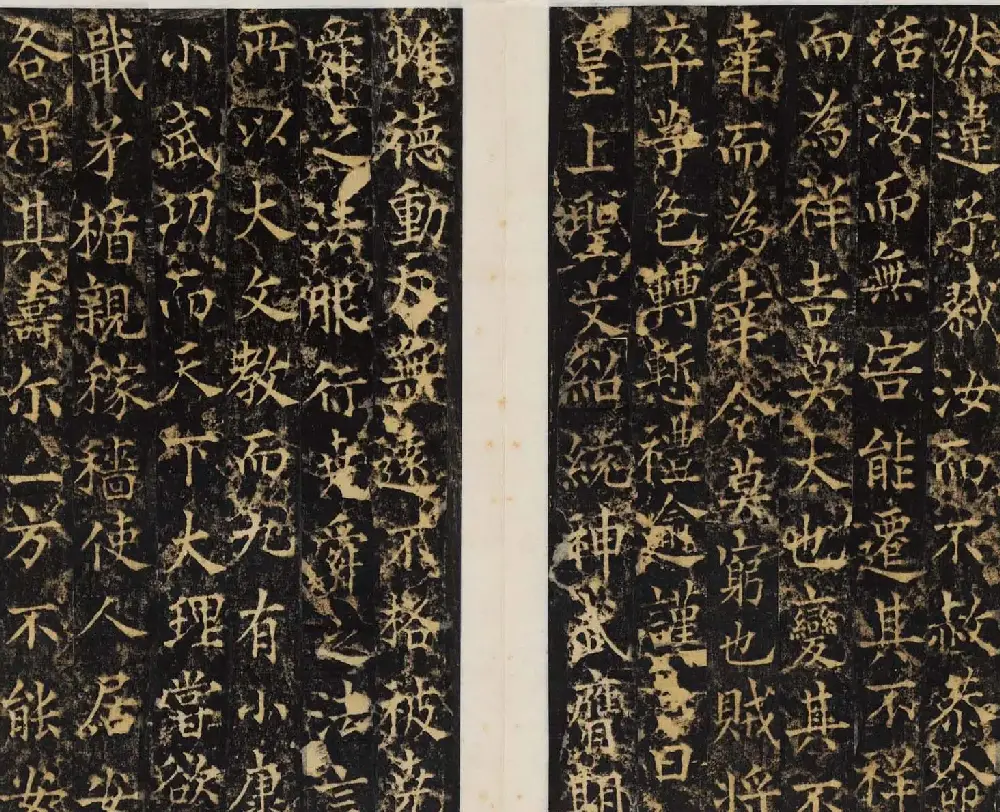 然違予汝而不赦恭命
活汝而無害能遷其不祥
而為祥吉莫大也變其不
幸而為幸令莫窮也賊將
卒等色轉慙禮逾謹曰
皇上聖文紹統神武膺期
惟德動天無遠不格被堯
舜之法服行堯舜之法言
所以大文教而九有小康
小武功而天下大理嘗欲
戢矛楯親稼穡使人居安
各得其壽尔一方不能安